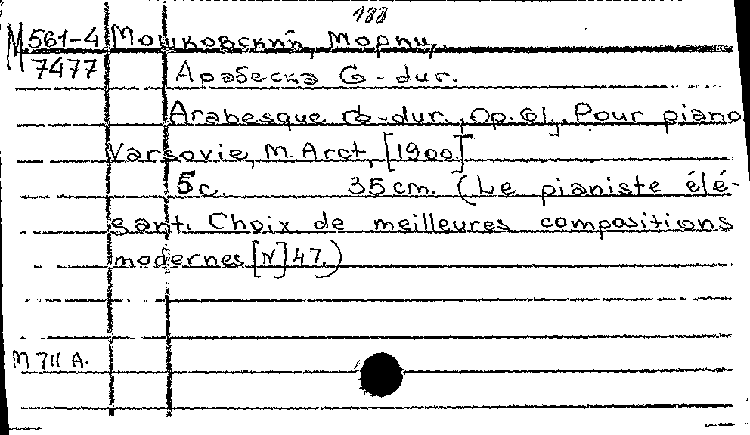 188
М 561-4 Мошковский, Мориц,
7477 Арабеска G-dur.
Arabesque G-dur, Op. 61, Pour piano
Varsovie, M. Arct, [1900]
5 c. 35 cm. (Le pianiste élé-
gant. Choix de meilleures compositions
modernes [N] 47.)
М 711 А.